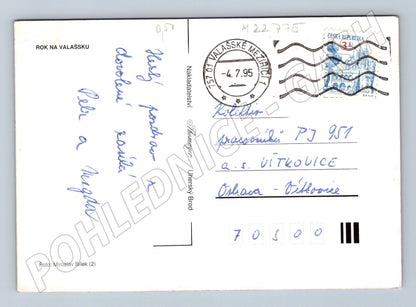 0,50
M 22 775
ROK NA VALAŠSKU
Hezký pozdrav z
dovolené zasílá
Petr a
757 01 VALAŠSKÉ MEZIŘÍČÍ 1
-4.7.95
ČESKÁ REPUBLIKA
3
Nakladatelství
Uherský Brod
Kolektiv
pracovníků PJ 951
a.s. VÍTKOVICE
Ostrava - Vítkovice
70500
Foto: Miroslav Bílek (2)
POHLEDNICE-CASH